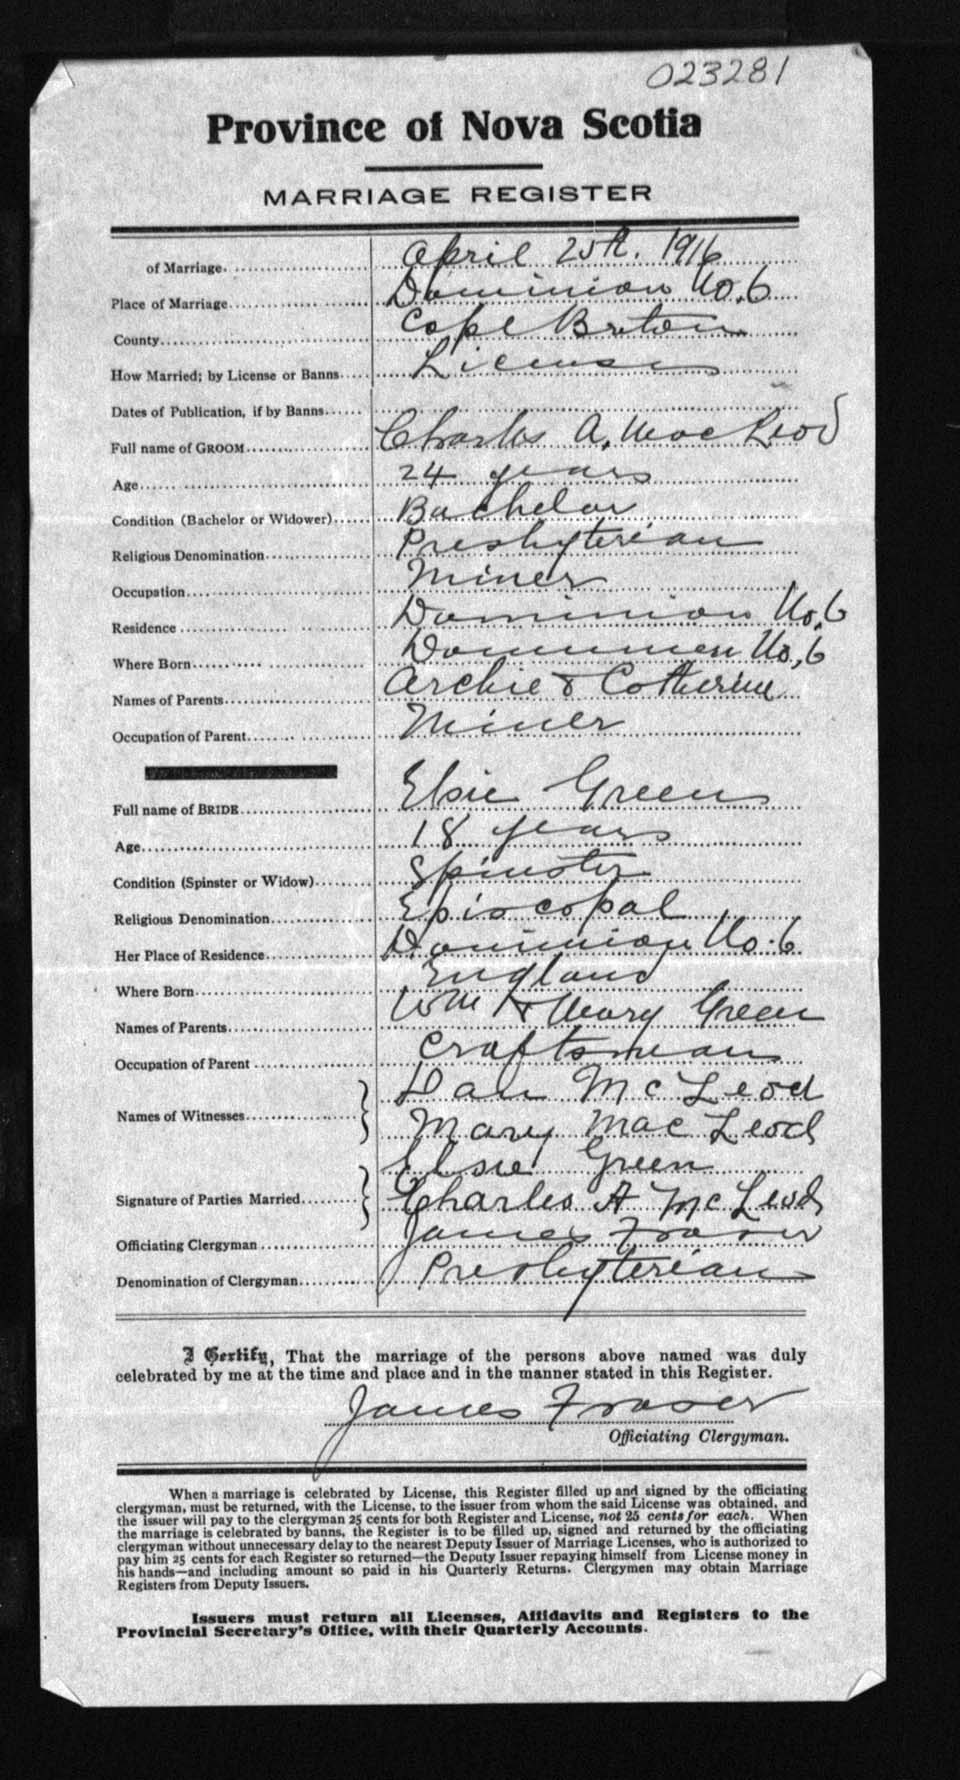 023281
Province of Nova Scotia
MARRIAGE REGISTER
of Marriage. April 25th. 1916
Place of Marriage Dominion No. 6
County Cape Breton
How Married; by License or Banns License
Dates of Publication, if by Banns
Full name of GROOM Charles A. MacLeod
Age 24 years
Condition (Bachelor or Widower) Bachelor
Religious Denomination Presbyterian
Occupation Miner
Residence Dominion No. 6
Where Born Dominion No. 6
Names of Parents Archie & Catherine
Occupation of Parent Miner
Full name of BRIDE Elsie Green
Age 18 years
Condition (Spinster or Widow) Spinster
Religious Denomination Episcopal
Her Place of Residence Dominion No. 6
Where Born England
Names of Parents Wm & Mary Green
Occupation of Parent Craftsman
Names of Witnesses Dan McLeod
Mary MacLeod
Signature of Parties Married Elsie Green
Charles A McLeod
Officiating Clergyman James Fraser
Denomination of Clergyman Presbyterian
I Certify, That the marriage of the persons above named was duly
celebrated by me at the time and place and in the manner stated in this Register.
James Fraser
Officiating Clergyman.
When a marriage is celebrated by License, this Register filled up and signed by the officiating
clergyman, must be returned, with the License, to the issuer from whom the said License was obtained, and
the issuer will pay to the clergyman 25 cents for both Register and License, not 25 cents for each. When
the marriage is celebrated by banns, the Register is to be filled up, signed and returned by the officiating
clergyman without unnecessary delay to the nearest Deputy Issuer of Marriage Licenses, who is authorized to
pay him 25 cents for each Register so returned—the Deputy Issuer repaying himself from License money in
his hands—and including amount so paid in his Quarterly Returns. Clergymen may obtain Marriage
Registers from Deputy Issuers.
Issuers must return all Licenses, Affidavits and Registers to the
Provincial Secretary's Office, with their Quarterly Accounts.